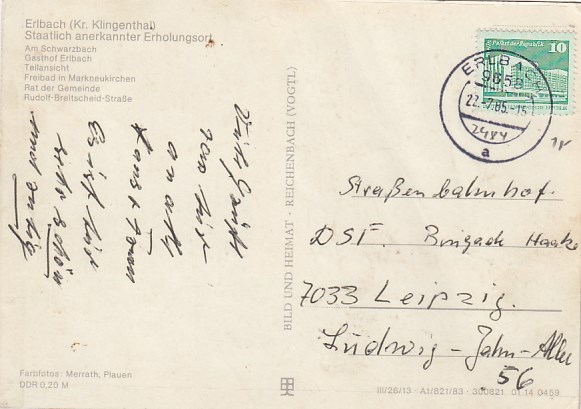 Erlbach (Kr. Klingenthal)
Staatlich anerkannter Erholungsort
Am Schwarzbach
Gasthof Erlbach
Teilansicht
Freibad in Markneukirchen
Rat der Gemeinde
Rudolf-Breitscheid-Straße
Viele Grüße
von hier
Es ist hier
sehr schön
BILD UND HEIMAT · REICHENBACH (VOGTL)
Palast der Republik 10
ERLBACH
9658
22.-7.85.-15
a
Straßenbahnhof.
DSF. Brigade Haake
7033 Leipzig.
Ludwig-Jahn-Allee
56
Farbfotos: Merrath, Plauen
DDR 0,20 M
III/26/13 · A1/821/83 · 300821 01 14 0459